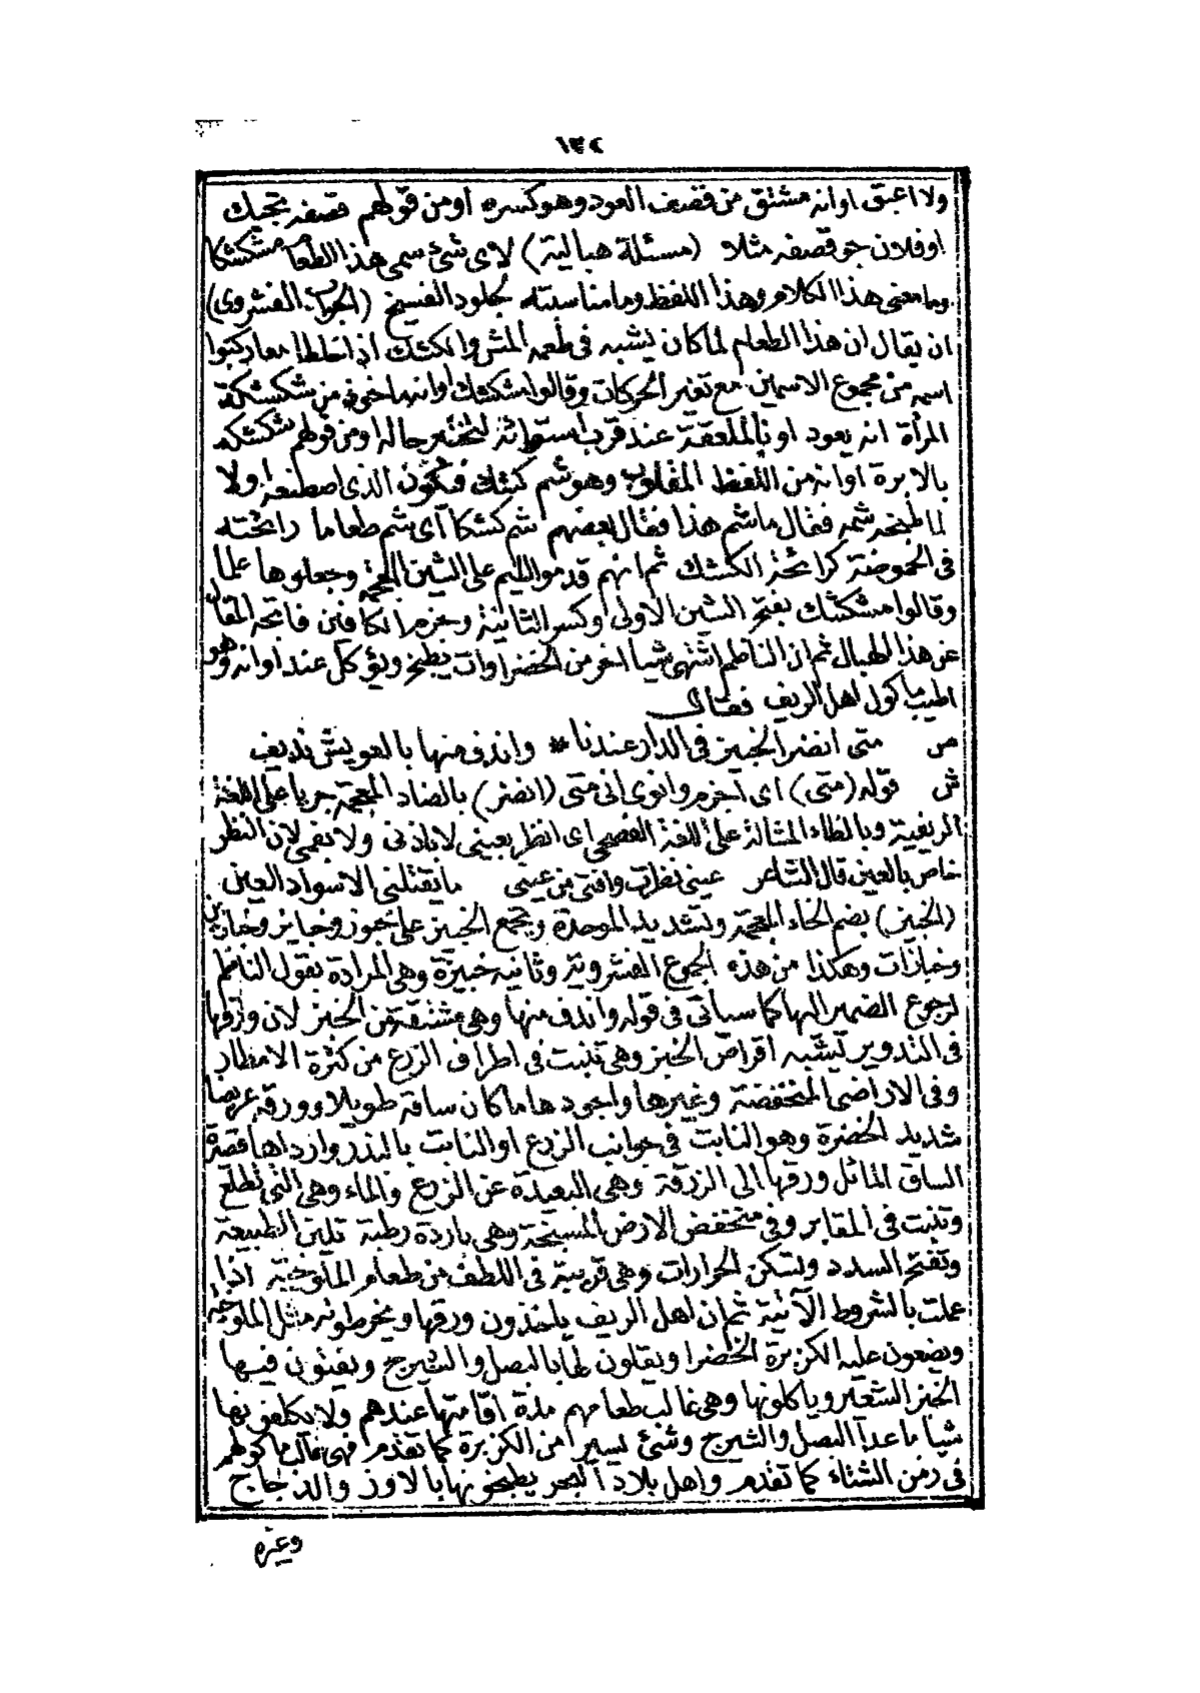 ١٣٤
ولا اعبق اوانه مشتق من قصف العود وهو كسره او من قولهم قصفه بتجيك
او فلان جو قصفه مثلا (مسئلة هبالية) لاى شئ سمى هذا الطعام مشكشكا
وما معنى هذا الكلام وهذا اللفظ وما مناسبته لجلود الفسيخ (الجواب الفشروى)
ان يقال ان هذا الطعام لما كان يشبه فى طعمه المش والكشك اذا خلطا معا ركبوا
اسمه من مجموع الاسمين مع تغير الحركات وقالوا مشكشك او انه ماخوذ من شكشكة
المرأة انه بعود او بالملعقة عند قرب استوائه لتختبر حاله او من قولهم شكشكه
بالابرة او انه من اللفظ المقلوب وهو شم كشك فيكون الذى اصطنعه اولا
لما طبخه شمه فقال ما شم هذا فقال بعضهم شم كشكا آى شم طعاما رائحته
فى الحموضة كرائحة الكشك ثم انهم قدموا الميم على الشين المعجمة وجعلوها علما
وقالوا مشكشك بفتح الشين الاولى وكسر الثانية وجزم الكافين فاتجه المقال
عن هذا الهبال ثم ان الناظم اشتهى شيا اخر من الخضراوات يطبخ ويؤكل عند اوانه وهو
اطيب ماكول اهل الريف فقال
ص متى انضر الخبيز فى الدار عندنا * واندف منها بالعويش نديف
ش قوله (متى) اى اجزم وانوى انى متى (انضر) بالضاد المعجمة جريا على اللغة
الريفية وبالظاء المشالة على اللغة الفصحى اى انظر بعينى لا باذنى ولا بفمى لان النظر
خاص بالعين قال الشاعر عينى نظرت وافتى من عينى ما يقتلنى الا سواد العين
(الخبيز) بضم الخاء المعجمة وتشديد الموحدة ويجمع الخبيز على خبوز وخبايز وخبازين
وخبازات وهكذا من هذه الجموع الفشروية وثانيه خبيزة وهى المرادة بقول الناظم
لرجوع الضمير اليها كما سياتى فى قوله واندف منها وهى مشتقة من الخبز لان ورقها
فى التدوير يشبه اقراص الخبز وهى تنبت فى اطراف الزرع من كثرة الامطار
وفى الاراضى المنخفضة وغيرها واجودها ما كان ساقه طويلا وورقه عريضا
شديد الخضرة وهو النابت فى جوانب الزرع او النابت بالبذر وارداها قصيرة
الساق المائل ورقها الى الزرقة وهى البعيدة عن الزرع والماء وهى التى تطلع
وتنبت فى المقابر وفى منخفض الارض المسبخة وهى باردة رطبة تلين الطبيعة
وتفتح السدد وتسكن الحرارات وهى قريبة فى اللطف من طعام الملوخية اذا
عملت بالشروط الآتية ثم ان اهل الريف ياخذون ورقها ويخرطونه مثل الملوخية
ويضعون عليه الكزبرة الخضرا ويقلون لها بالبصل والشيرج ويفتون فيها
الخبز الشعير وياكلونها وهى غالب طعامهم مدة اقامتها عندهم ولا يكلفو بها
شيا ما عدا البصل والشيرج وشئ يسير من الكزبرة كما تقدم فهى غالب ماكولهم
فى زمن الشتاء كما تقدم واهل بلاد البحر يطبخونها بالاوز والدجاج
وغيره